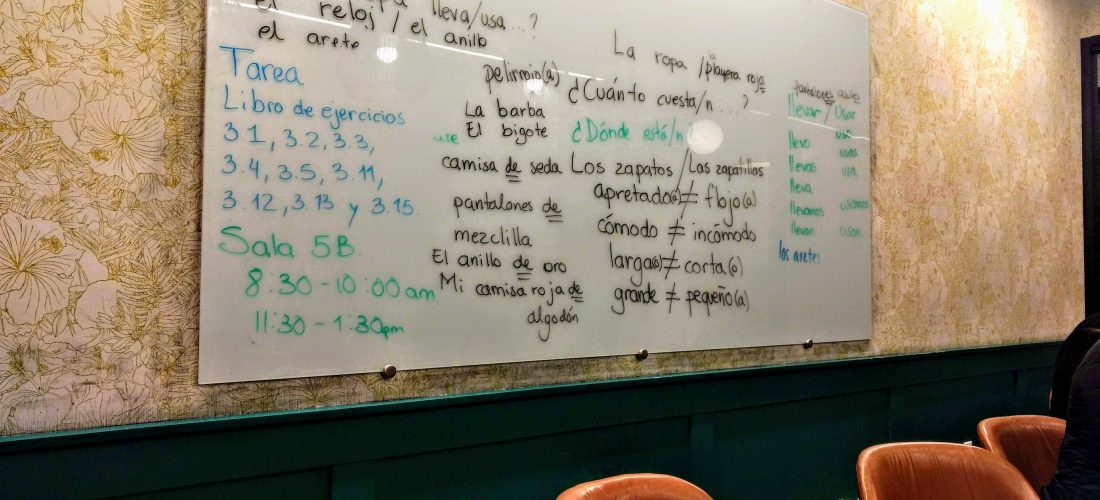 lleva/usa ...?
el reloj / el anillo
el arete
Tarea
Libro de ejercicios
3.1, 3.2, 3.3,
3.4, 3.5, 3.11,
3.12, 3.13 y 3.15.
Sala 5B
8:30 - 10:00 am
11:30 - 1:30pm
pelirrojo(a)
La barba
El bigote
camisa de seda
pantalones de
mezclilla
El anillo de oro
Mi camisa roja de
algodón
La ropa / la playera roja
¿Cuánto cuesta/n ...?
¿Dónde está/n
Los zapatos / Las zapatillas
apretado(a) ≠ flojo(a)
cómodo ≠ incómodo
larga(o) ≠ corta(o)
grande ≠ pequeño(a)
pantalones azules
llevar / usar
uso
llevo usas
llevas usa
lleva
llevamos usamos
llevan usan
los aretes